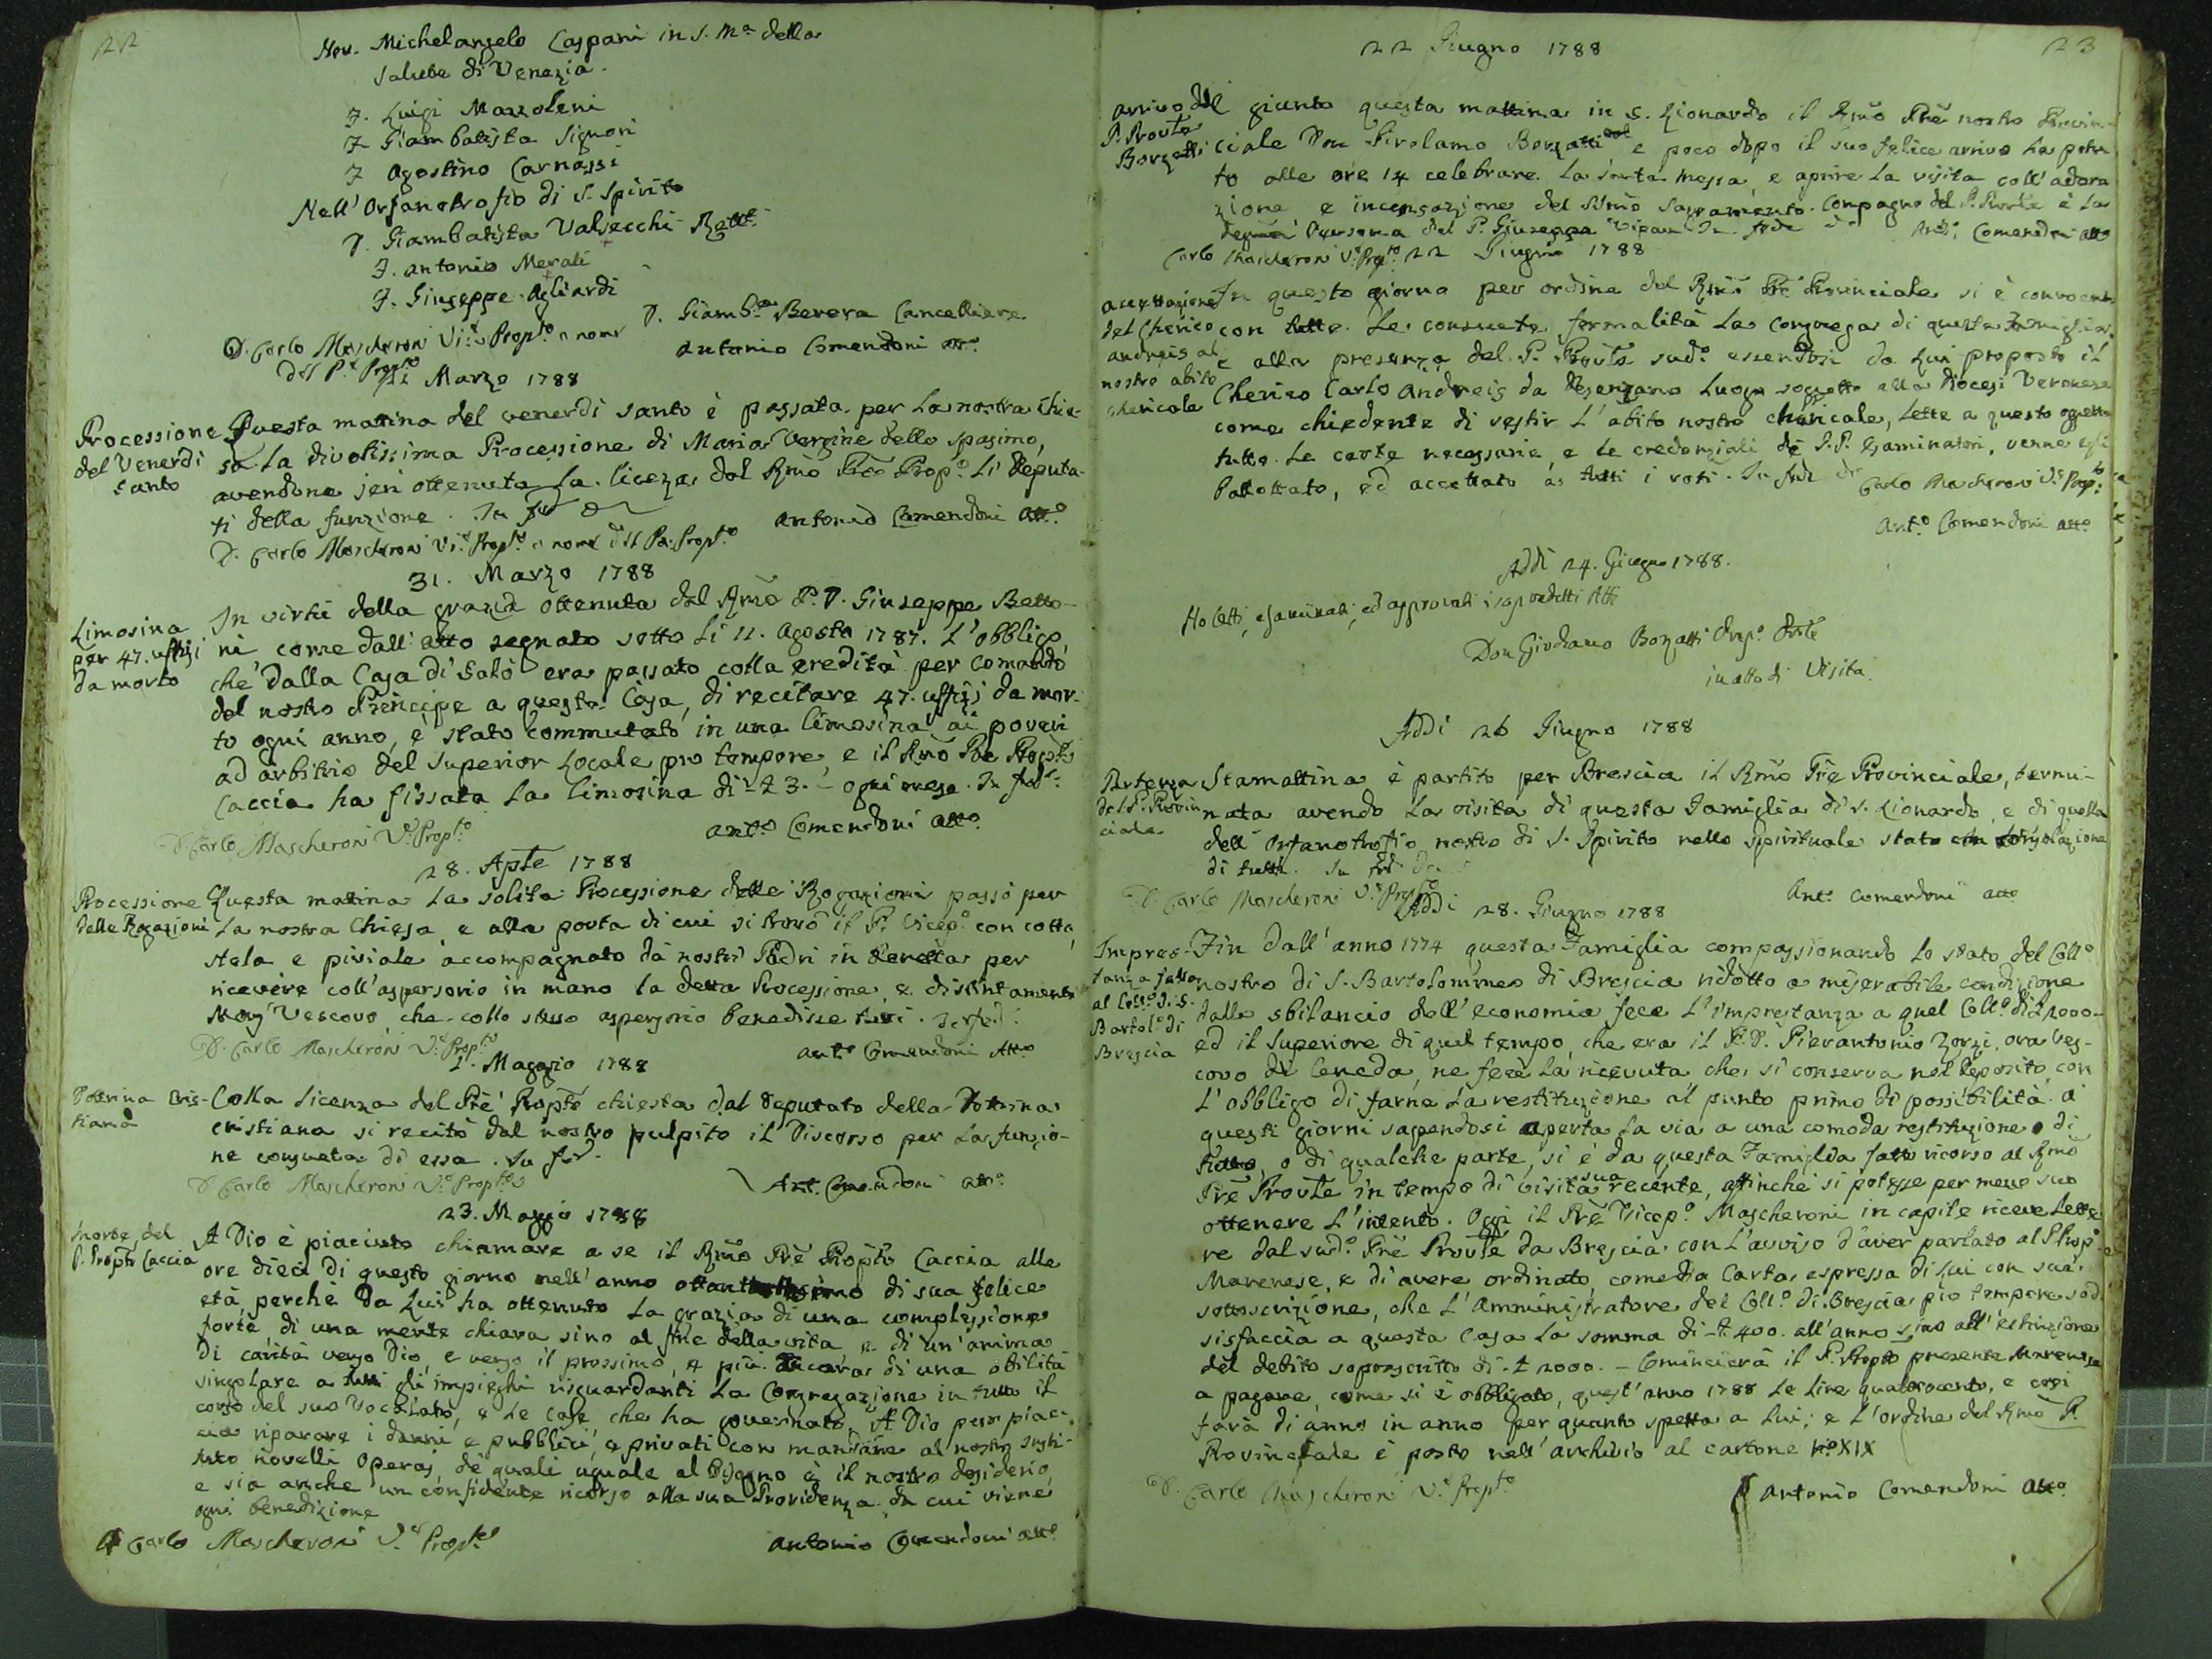 22
Nov. Michelangelo Caspani in S. Mª della
Salute di Venezia.
F. Luigi Mazzoleni
F Giambatista Signori
F Agostino Carnazzi
Nell' Orfanotrofio di S. Spirito
D. Giambatista Valsecchi Rett.e
F. Antonio Merati
F. Giuseppe Agliardi
D. Giamb.a Bevera Cancelliere
D. Carlo Mascheroni Vi.e Prop.to a nome
del P.e Prop.to
Antonio Comendoni att.o
21 Marzo 1788
Processione
del Venerdi
santo
Questa mattina del venerdi santo è passata per la nostra Chie-
sa la divotissima Processione di Maria Vergine dello spasimo,
avendone jeri ottenuta la licenza dal Rmo Pre Prop.o li deputa-
ti della funzione. In fede
D. Carlo Mascheroni Vi.e Prop.to a nome del Pe. Prop.to
Antonio Comendoni att.o
31. Marzo 1788
Limosina
per 47. uffizj
da morto
In virtù della grazia ottenuta dal Rmo P. D. Giuseppe Betto-
ni come dall' atto segnato sotto li 11. Agosto 1787. L'obbligo,
che dalla Casa di Salò era passato colla eredità per comando
del nostro Principe a questa Casa, di recitare 47. uffizj da mor-
to ogni anno, è stato commutato in una limosina ai poveri
ad arbitrio del Superior Locale pro tempore, e il Rmo Pre Prop.to
Caccia ha fissata la limosina di £ 3. - ogni mese. In fede.
D. Carlo Mascheroni V.e Prop.to
Ant.o Comendoni att.o
28. Aple 1788
Processione
delle Rogazioni
Questa mattina la solita Processione delle Rogazioni passò per
la nostra Chiesa, e alla porta di cui si trovò il P. Vicep.o con cotta,
stola e piviale accompagnato da nostri Padri in beretta per
ricevere coll'aspersorio in mano la detta Processione, e distintamente
Mons.r Vescovo, che collo stesso aspersorio benedisse tutti. In fede.
D. Carlo Mascheroni V.e Prop.to
Ant.o Comendoni Att.o
1.o Maggio 1788
Dottrina Cris-
tiana
Colla licenza del Pre Propto chiesta dal Deputato della Dottrina
cristiana si recitò dal nostro pulpito il Discorso per la funzio-
ne consueta di essa. In fede.
D. Carlo Mascheroni V.e Prop.to
Ant. Comendoni att.o
23. Maggio 1788
Morte del
P. Propto Caccia
A Dio è piaciuto chiamare a se il Rmo Pre Propto Caccia alle
ore dieci di questo giorno nell' anno di sua felice
età, perchè da Lui ha ottenuto la grazia di una complessione
forte, di una mente chiara sino al fine della vita e di un' anima
di carità verso Dio, e verso il prossimo, e più ancora di una abilità
singolare a tutti gli impieghi risguardanti la Congregazione in tutto il
corso del suo Vocalato, e le Case che ha governato. A Dio pur piac-
cia riparare i danni e pubblici, e privati con mandare al nostro Insti-
tuto novelli Operaj, de' quali uguale al bisogno è il nostro desiderio,
e sia anche un confidente ricorso alla sua Providenza, da cui viene
ogni benedizione
D Carlo Mascheroni V.e Prop.to
Antonio Comendoni att.o
22 Giugno 1788
23
Arrivo del
P. Provle
Borzatti
giunto questa mattina in S. Lionardo il Rmo Pre nostro Provin-
ciale Don Girolamo Borzatti e poco dopo il suo felice arrivo ha potu
to alle ore 14 celebrare la santa Messa, e aprire la visita coll'adora
zione e incensazione del SSmo Sagramento. Compagno del P. Provle è la
degna Persona del P. Giuseppe In fede
Ant.o Comendoni att.o
Carlo Mascheroni V.e Prop.to
22 Giugno 1788
accettazione
del Cherico
Andreis al
nostro abito
chericale
In questo giorno per ordine del Rmo Pre Provinciale si è convocata
con tutte le consuete formalità la Congrega di questa Famiglia,
e alla presenza del P. Provle sud.o essendosi da Lui proposto il
Cherico Carlo Andreis da Desenzano Luogo soggetto alla Diocesi Veronese
come chiedente di vestir l'abito nostro chericale, lette a questo oggetto
tutte le carte necessarie, e le credenziali de' P.P. Esaminatori, venne egli
ballottato, ed accettato a tutti i voti. In fede
Carlo Mascheroni V.e Prop.to
Ant.o Comendoni att.o
Addì 24. Giugno 1788.
Ho letti, esaminati, ed approvati i sopradetti Atti
Don Girolamo Borzatti Prep.o Prvle
in atto di Visita.
Addì 26 Giugno 1788
Partenza
del P. Provin
ciale
Stamattina è partito per Brescia il Rmo Pre Provinciale, termi-
nata avendo la visita di questa Famiglia di S. Lionardo, e di quella
dell' Orfanotrofio nostro di S. Spirito nello spirituale stato con consolazione
di tutti. In fede
D. Carlo Mascheroni V.e Prop.to
Ant.o Comendoni att.o
Addì 28. Giugno 1788
Impres-
tanza fatta
al Coll.o di S.
Bartol.o di
Brescia
Fin dall'anno 1774 questa Famiglia compassionando lo stato del Coll.o
nostro di S. Bartolommeo di Brescia ridotto a miserabile condizione
dallo sbilancio dell'economia fece l'imprestanza a quel Coll.o di £ 2000-
ed il Superiore di quel tempo, che era il P. D. Pierantonio Zorzi, ora Ves-
covo di Ceneda, ne fece la ricevuta, che si conserva nel deposito, con
l'obbligo di farne la restituzione al punto primo di possibilità. A
questi giorni sapendosi aperta la via a una comoda restituzione o di
tutto, o di qualche parte, si è da questa Famiglia fatto ricorso al Rmo
Pre Provle in tempo di visita sua recente, affinchè si potesse per mezzo suo
ottenere l'intento. Oggi il Pre Vicep.o Mascheroni in capite riceve lette
re dal sud.o Pre Provle da Brescia con l'avviso d'aver parlato al P. Prop.o
Marenese, e di avere ordinato, come da Carta espressa di Lui con sua
sottoscrizione, che l'Amministratore del Coll.o di Brescia pro tempore sod
disfaccia a questa Casa la somma di £ 400. all'anno sino all'estinzione
del debito soprascritto di £ 2000. - Comincierà il P. Propto presente Marenese
a pagare, come si è obbligato, quest'anno 1788 le lire quattrocento, e così
farà di anno in anno per quanto spetta a Lui; e l'ordine del Rmo P.
Provinciale è posto nell'archivio al cartone No XIX
D. Carlo Mascheroni V.e Prop.to
Antonio Comendoni att.o